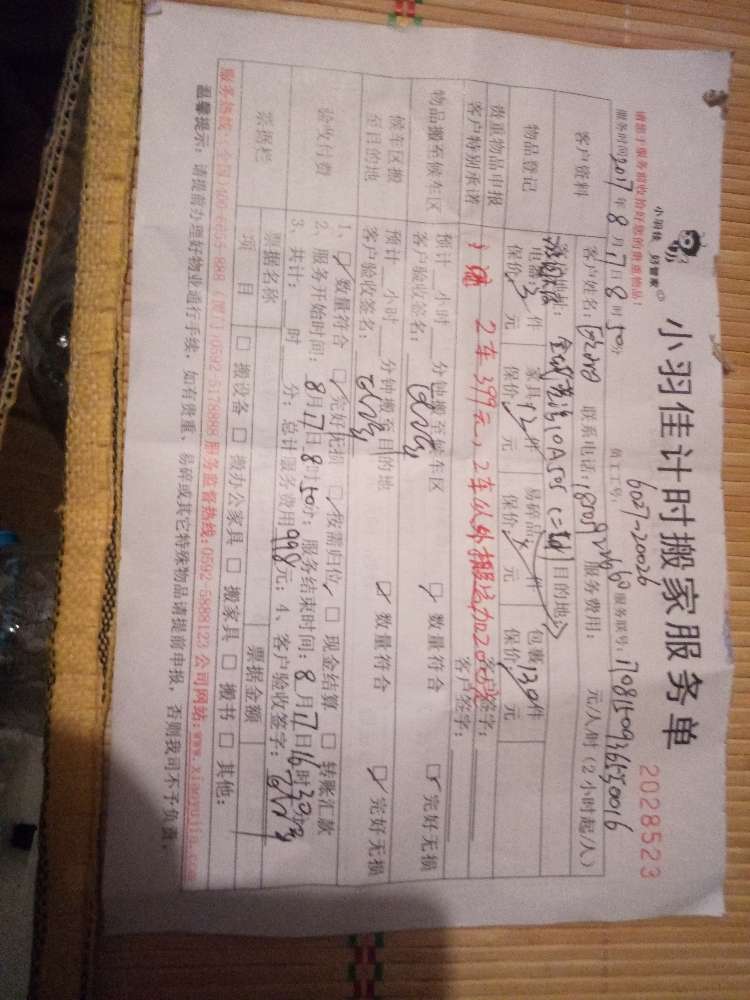 小羽佳 好管家
小羽佳计时搬家服务单
2028523
请您于服务前收拾好您的贵重物品!
6027-20026
服务时间:2017年8月17日8时50分 员工工号: 服务联号:
客户资料
客户姓名: 联系电话: 服务费用: 元/人/时(2小时起/人)
目的地:
物品登记
电器 件 家具 件 易碎品 件 包裹130件
保价 元 保价 元 保价 元 保价 元
贵重物品申报
客户签字:
客户特别承诺
2车399元,2车以外搬运加200元
客户签字:
物品搬至候车区
预计 小时 分钟搬至候车区 ☑ 数量符合 ☑ 完好无损
客户验收签名:
候车区搬至目的地
预计 小时 分钟搬至目的地 ☑ 数量符合 ☑ 完好无损
客户验收签名:
验收付费
1、☑ 数量符合 ☑ 完好无损 ☑ 按需归位 □ 现金结算 □ 转账汇款
2、服务开始时间:8月17日8时50分;服务结束时间:8月17日16时30分
3、共计: 时 分;总计服务费用998元;4、客户验收签字:
票据栏
票据名称 票据金额
项目 □ 搬设备 □ 搬办公家具 □ 搬家具 □ 搬书 □ 其他:
服务热线:(厦门)0592-5178888 服务监督热线:0592-5888123 公司网站:www.xiaoyujia.com
温馨提示:请提前办理好物业通行手续,如有贵重、易碎或其它特殊物品请提前申报,否则我司不予负责。